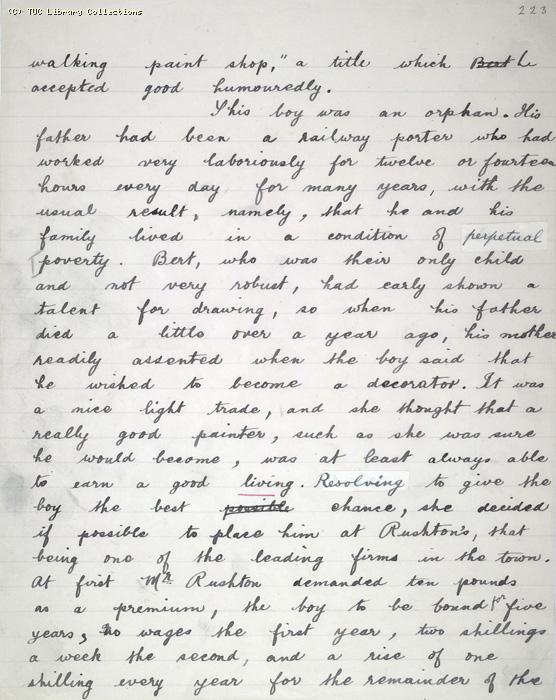 (C) TUC Library Collections
223
walking paint shop," a title which Bert he
accepted good humouredly.
This boy was an orphan. His
father had been a railway porter who had
worked very laboriously for twelve or fourteen
hours every day for many years, with the
usual result, namely, that he and his
family lived in a condition of perpetual
poverty. Bert, who was their only child
and not very robust, had early shown a
talent for drawing, so when his father
died a little over a year ago, his mother
readily assented when the boy said that
he wished to become a decorator. It was
a nice light trade, and she thought that a
really good painter, such as she was sure
he would become, was at least always able
to earn a good living. Resolving to give the
boy the best possible chance, she decided
if possible to place him at Rushton's, that
being one of the leading firms in the town.
At first Mr Rushton demanded ten pounds
as a premium, the boy to be bound for five
years, no wages the first year, two shillings
a week the second, and a rise of one
shilling every year for the remainder of the